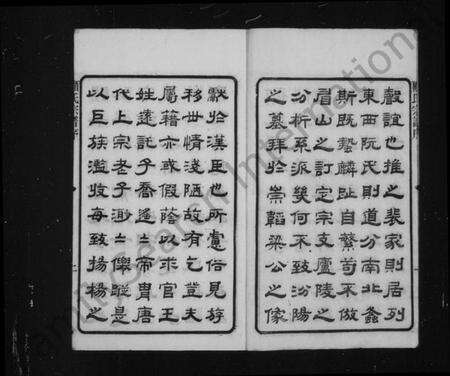 聲誼也推之裴家則居列
東西阮氏則道分南北螽
斯既蟄麟趾自繁苟不倣
眉山之訂定宗支廬陵之
分析系派幾何不致汾陽
之墓拜於崇韜梁公之像
獻於漢臣也所慮俗見族
移世情淺陋故有乞登夫
屬籍亦或假蔭以求官王
姓遠託子喬遙遙帝胄唐
代上宗老子渺渺僊蹤是
以巨族濫收每致揚揚之